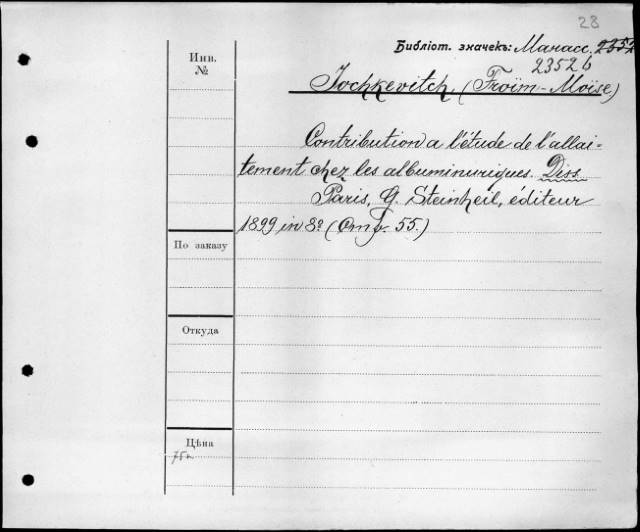 28
Библіот. значекъ: Манасс. 2352
2352b
Инв.
№
Jochkevitch, (Froïm-Moïse)
Contribution a l'étude de l'allai-
tement chez les albuminuriques. Diss.
Paris, G. Steinheil, éditeur
1899 in 8º ( 55.)
По заказу
Откуда
Цѣна